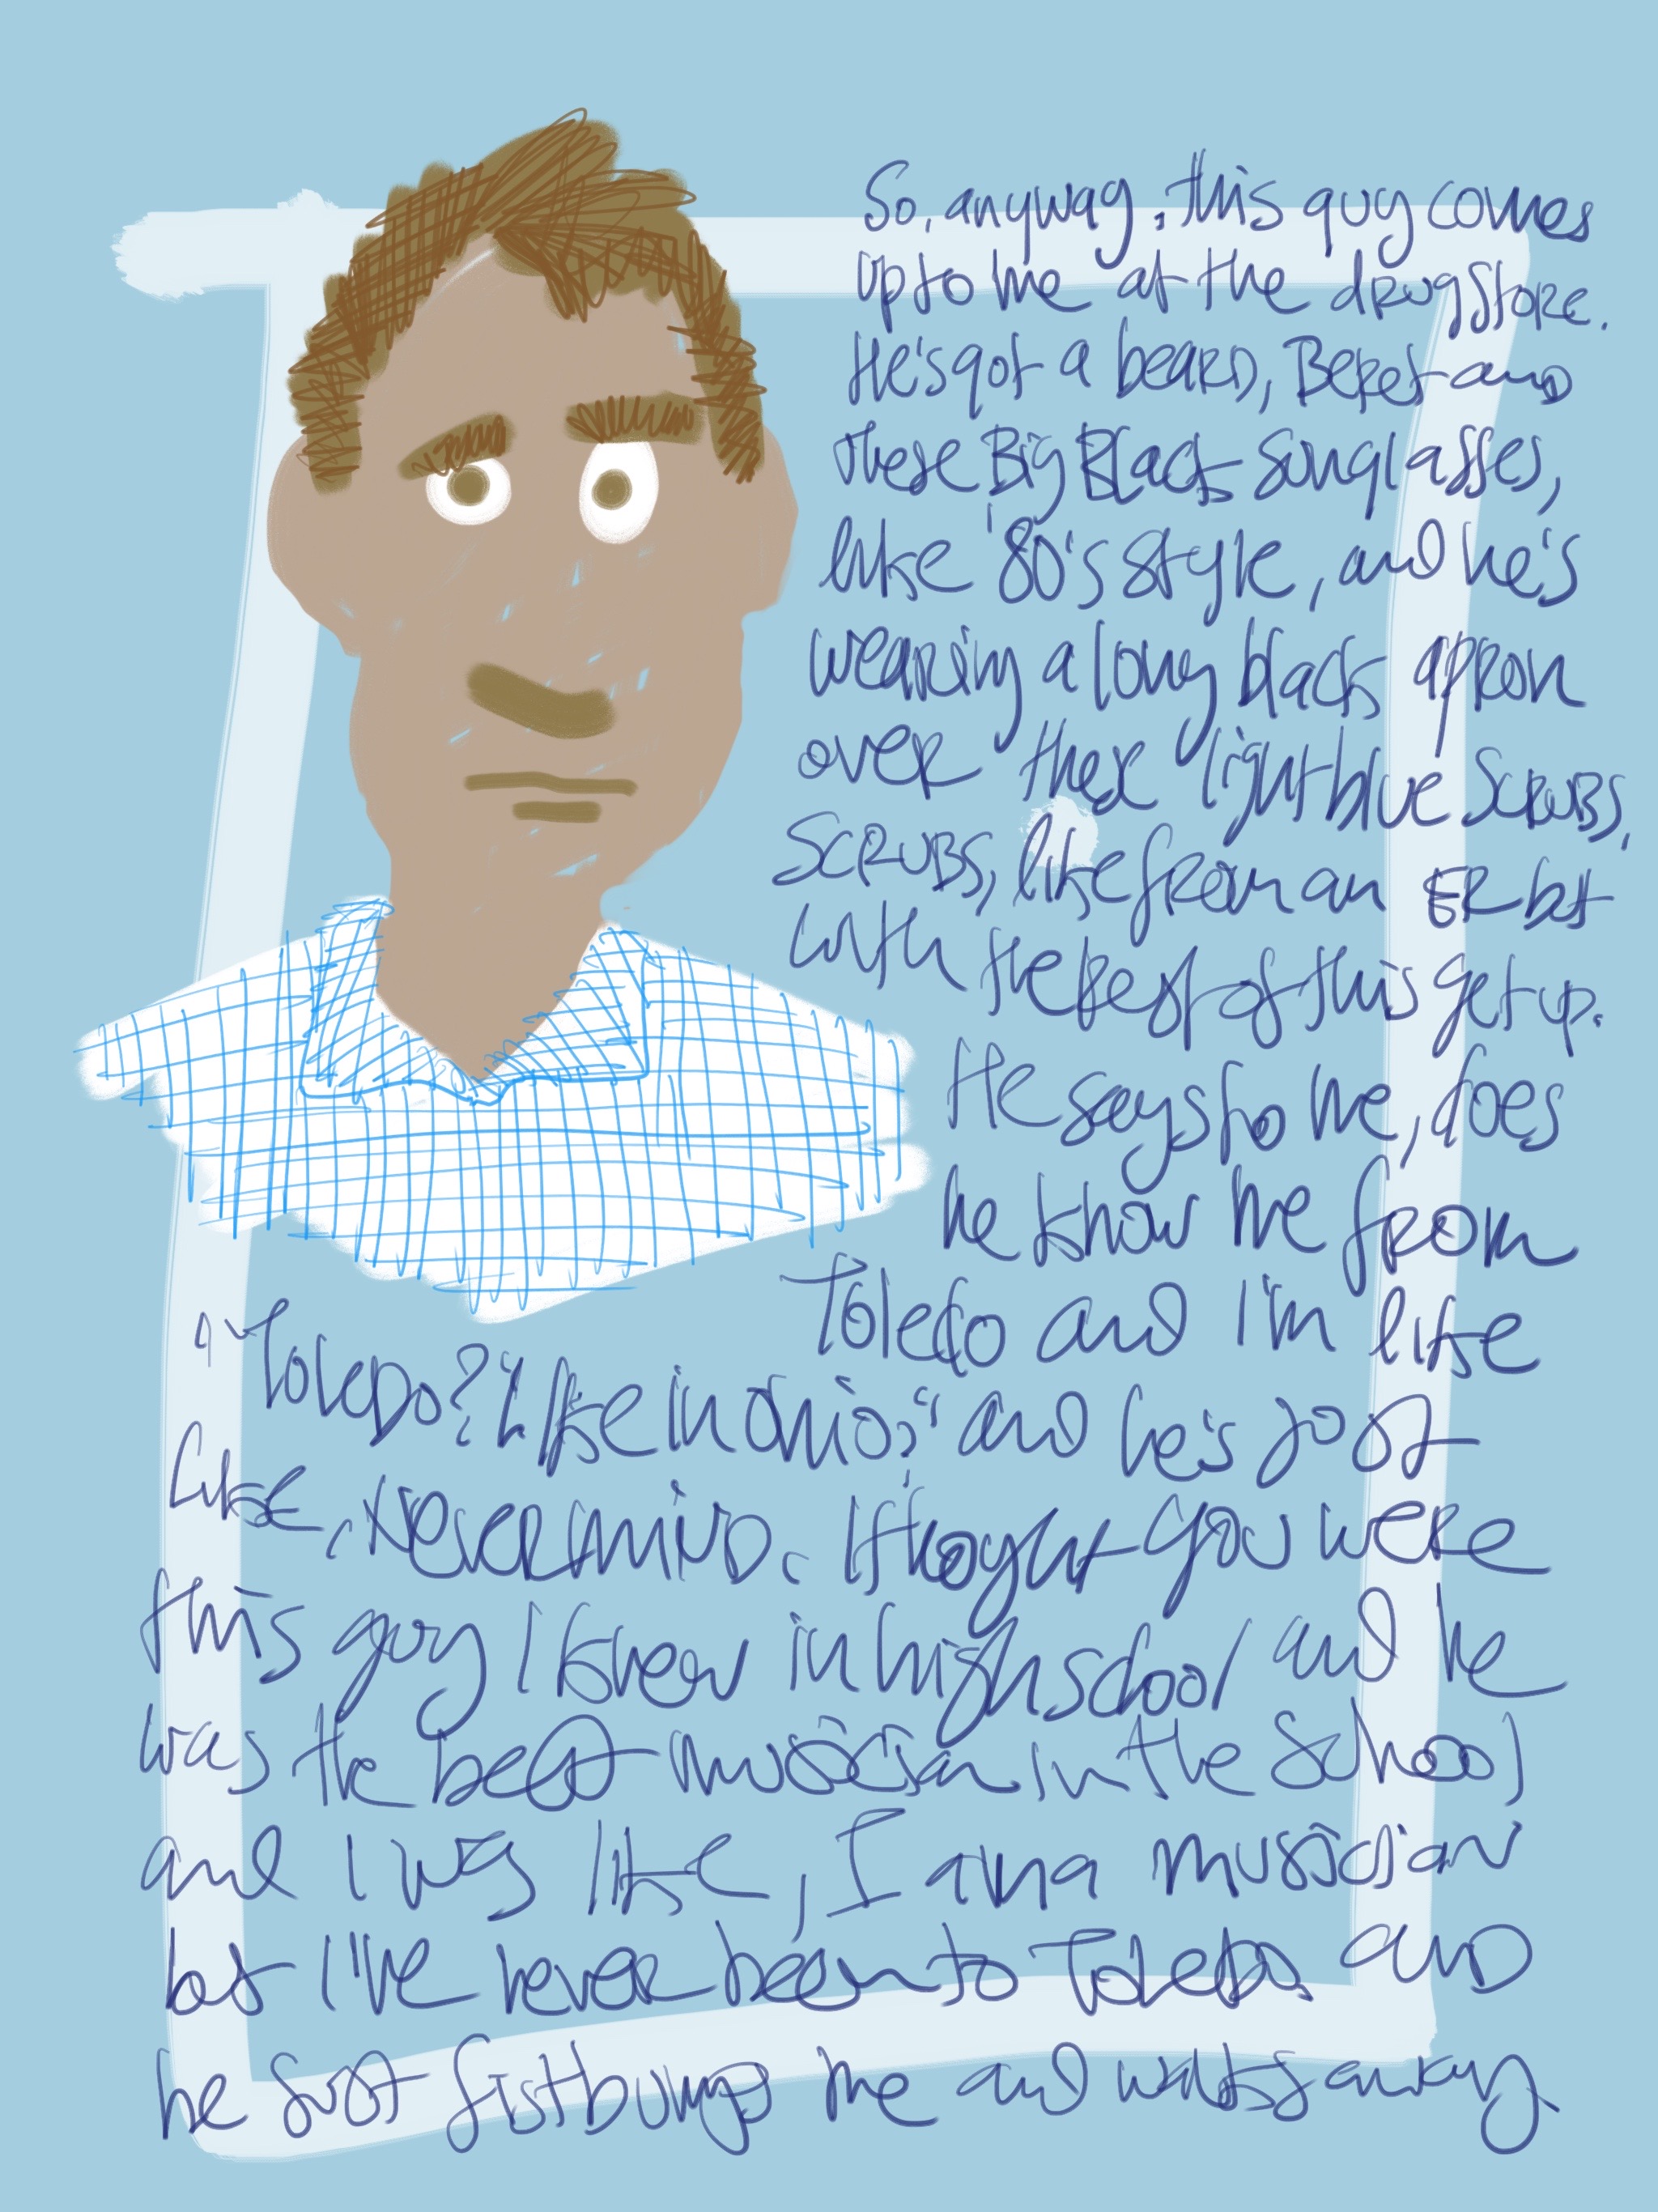 So, anyway, this guy comes
up to me at the drugstore.
He's got a beard, Beret and
these Big Black sunglasses,
like '80's style, and he's
wearing a long black apron
over these light blue scrubs,
SCRUBS, like from an ER but
with the rest of this get up.
He says to me, does
he know me from
Toledo and I'm like
"Toledo? Like in Ohio?" and he's just
like, Nevermind. I thought you were
this guy I knew in high school and he
was the best musician in the school
and I was like, I am a musician
but I've never been to Toledo and
he just fistbumps me and walks away.